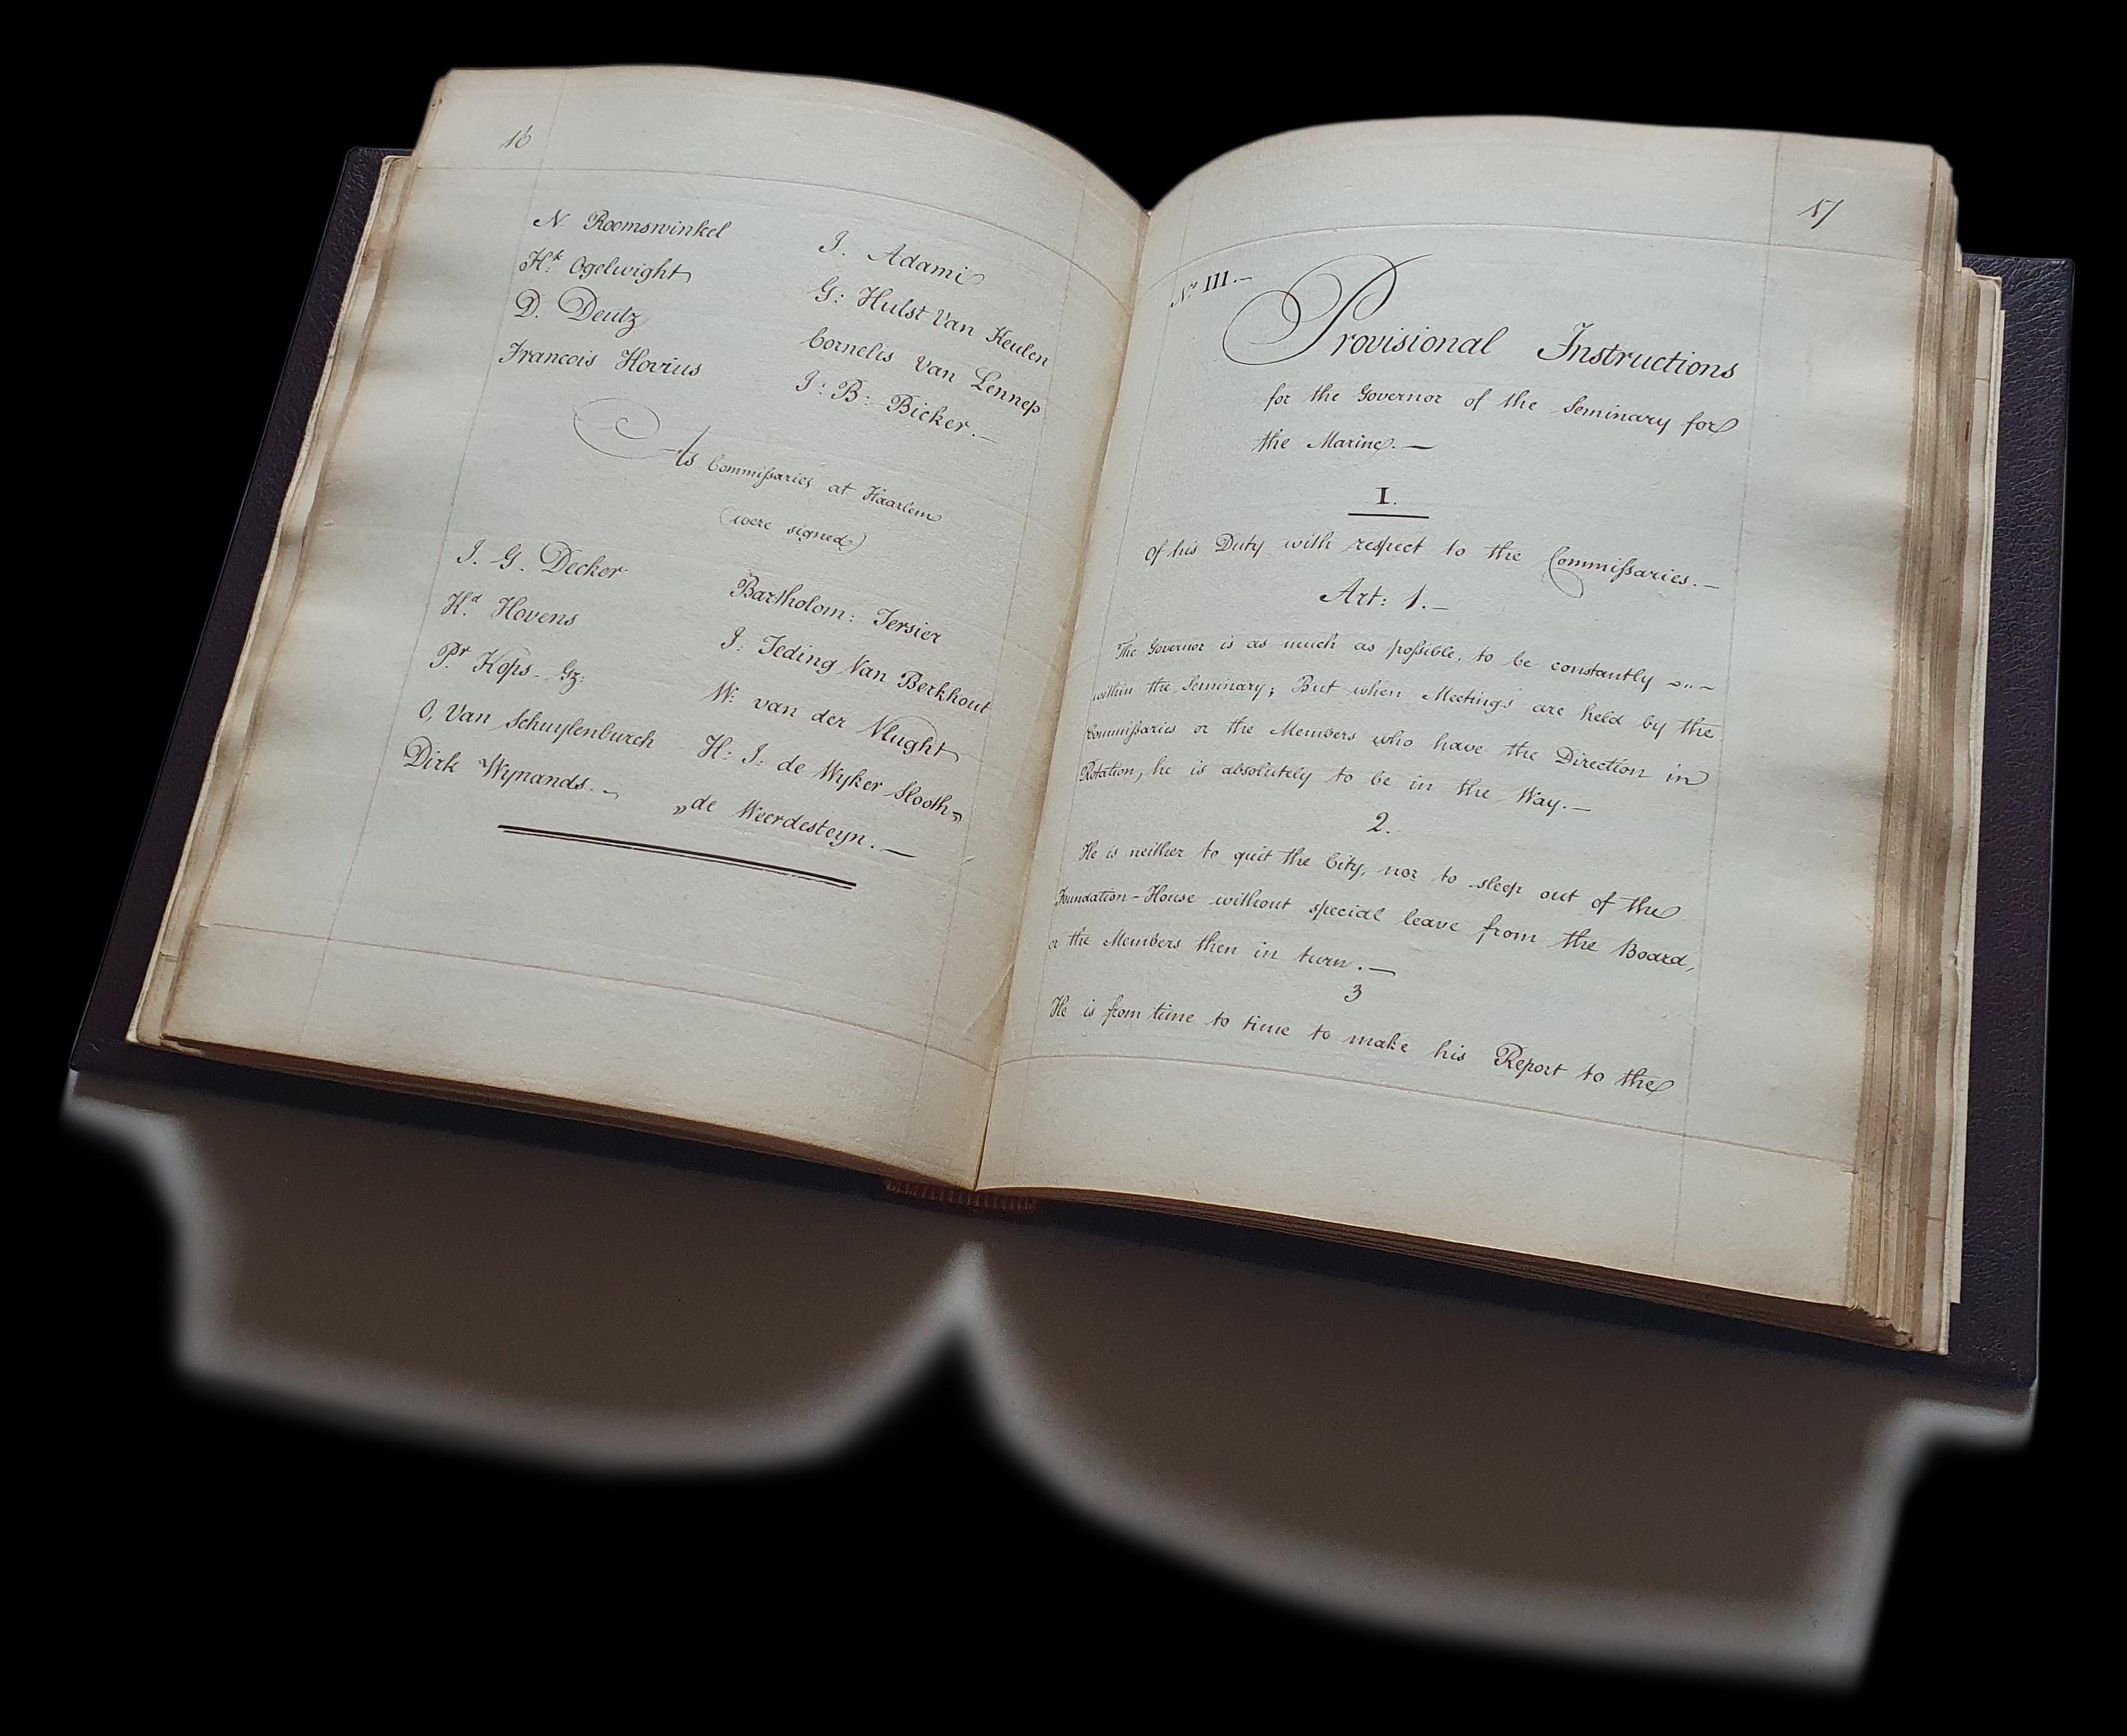 16
N. Roomswinkel
Hk. Ogelwight
D. Deutz
Francois Hovius
J. Adami
G: Hulst Van Keulen
Cornelis Van Lennep
J: B: Bicker.—
As Commißaries at Haarlem
(were signed)
J. G. Decker
Kd. Hovens
Pr. Kops. Gz:
O, Van Schuylenburch
Dirk Wynands.
Bartholom: Tersier
J: Teding Van Berkhout
W: van der Vlught
H: J: de Wyker Slooth„
„de Weerdesteyn.—
17
No. III.—
Provisional Instructions
for the Governor of the Seminary for
the Marine.—
I.
Of his Duty with respect to the Commißaries.—
Art: 1.—
The Governor is as much as poßible, to be constantly
within the Seminary; But when Meetings are held by the
Commißaries or the Members who have the Direction in
Rotation, he is absolutely to be in the Way.—
2.
He is neither to quit the City, nor to sleep out of the
Foundation-House without special leave from the Board,
or the Members then in turn.—
3
He is from time to time to make his Report to the